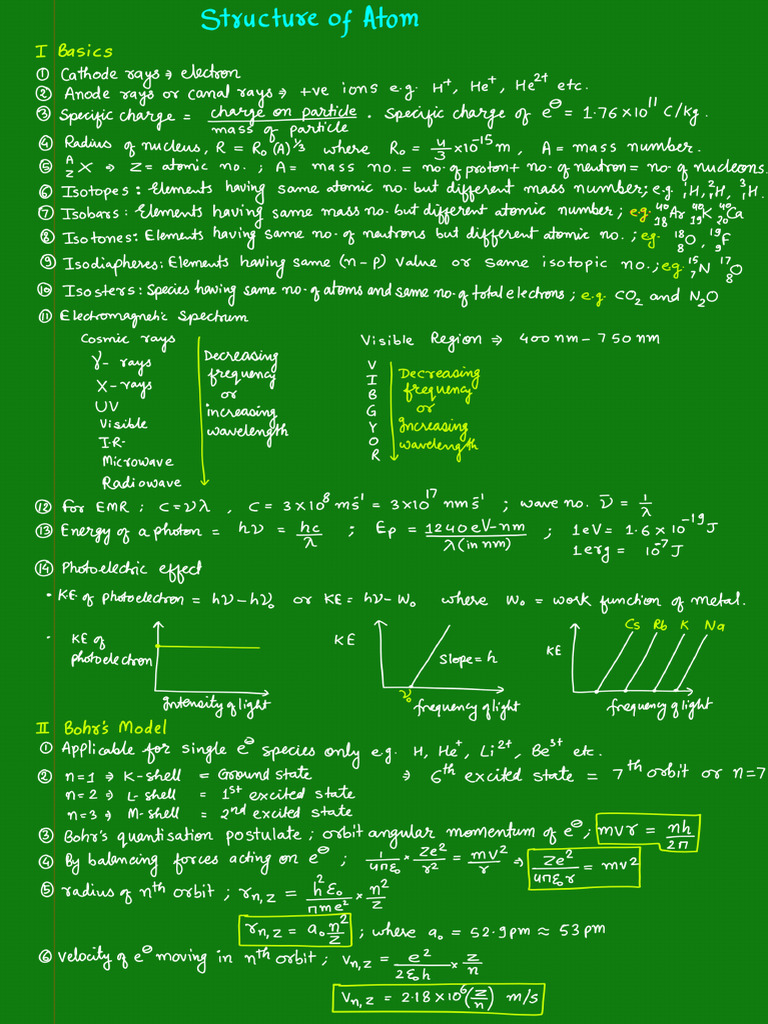 Structure of Atom
I Basics
① Cathode rays ⇒ electron
② Anode rays or canal rays ⇒ +ve ions e.g. H⁺, He⁺, He²⁺ etc.
③ Specific charge = charge on particle / mass of particle . Specific charge of e⊖ = 1.76×10¹¹ C/kg.
④ Radius of nucleus, R = R₀(A)^1/3 where R₀ = 4/3×10⁻¹⁵ m, A = mass number.
⑤ ᴬ_Z X ⇒ Z = atomic no. ; A = mass no. = no. of proton + no. of neutron = no. of nucleons.
⑥ Isotopes : Elements having same atomic no. but different mass number; e.g. ¹₁H, ²₁H, ³₁H.
⑦ Isobars : Elements having same mass no. but different atomic number ; e.g. ⁴⁰₁₈Ar ⁴⁰₁₉K ⁴⁰₂₀Ca
⑧ Isotones: Elements having same no. of neutrons but different atomic no. ; eg. ¹⁸₈O, ¹⁹₉F
⑨ Isodiapheres: Elements having same (n-p) value or same isotopic no.; eg. ¹⁵₇N ¹⁷₈O
⑩ Isosters : Species having same no. of atoms and same no. of total electrons ; e.g. CO₂ and N₂O
⑪ Electromagnetic Spectrum
Cosmic rays
γ- rays
X-rays
UV
Visible
I.R.
Microwave
Radiowave
Decreasing
frequency
or
increasing
wavelength
Visible Region ⇒ 400nm - 750nm
V
I
B
G
Y
O
R
Decreasing
frequency
or
Increasing
wavelength
⑫ For EMR ; C = νλ , C = 3×10⁸ ms⁻¹ = 3×10¹⁷ nms⁻¹ ; wave no. ν̄ = 1/λ
⑬ Energy of a photon = hν = hc/λ ; Eₚ = 1240 eV-nm / λ(in nm) ; 1eV = 1.6×10⁻¹⁹ J
1erg = 10⁻⁷ J
⑭ Photoelectric effect
• KE of photoelectron = hν - hν₀ or KE = hν - W₀ where W₀ = work function of metal.
• KE of
photoelectron
Intensity of light
KE
Slope = h
ν₀
frequency of light
KE
Cs Rb K Na
frequency of light
II Bohr's Model
① Applicable for single e⊖ species only e.g. H, He⁺, Li²⁺, Be³⁺ etc.
② n=1 ⇒ K-shell = Ground state ⇒ 6th excited state = 7th orbit or n=7
n=2 ⇒ L-shell = 1st excited state
n=3 ⇒ M-shell = 2nd excited state
③ Bohr's quantisation postulate ; orbit angular momentum of e⊖ ; mvr = nh/2π
④ By balancing forces acting on e⊖ ; 1/4πε₀ × Ze²/r² = mv²/r ⇒ Ze²/4πε₀r = mv²
⑤ radius of nth orbit ; r_n,z = h²ε₀/πme² × n²/Z
r_n,z = a₀ n²/Z ; where a₀ = 52.9pm ≈ 53pm
⑥ Velocity of e⊖ moving in nth orbit ; V_n,z = e²/2ε₀h × Z/n
V_n,z = 2.18×10⁶(Z/n) m/s